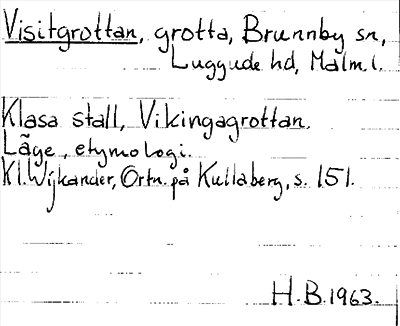 Visitgrottan, grotta, Brunnby sn,
Luggude hd, Malm. l.
Klasa stall, Vikingagrottan.
Läge, etymologi.
Kl. Wijkander, Ortn. på Kullaberg, s. 151.
H.B.1963.